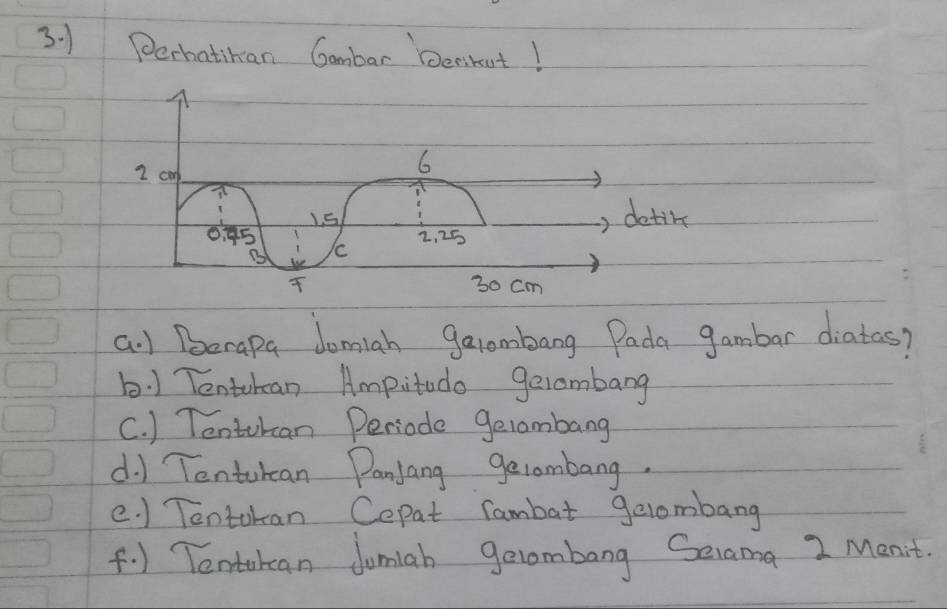 3.) Perhatikan Gambar berikut !
2 cm
G
1,5
detik
0,75
2,25
B
C
F
30 cm
a.) Berapa Jumlah gelombang Pada gambar diatas?
b.) Tentukan Ampitudo gelombang
C.) Tentukan Periode gelombang
d.) Tentukan Panjang gelombang.
e.) Tentukan Cepat rambat gelombang
f.) Tentukan Jumlah gelombang Selama 2 Menit.